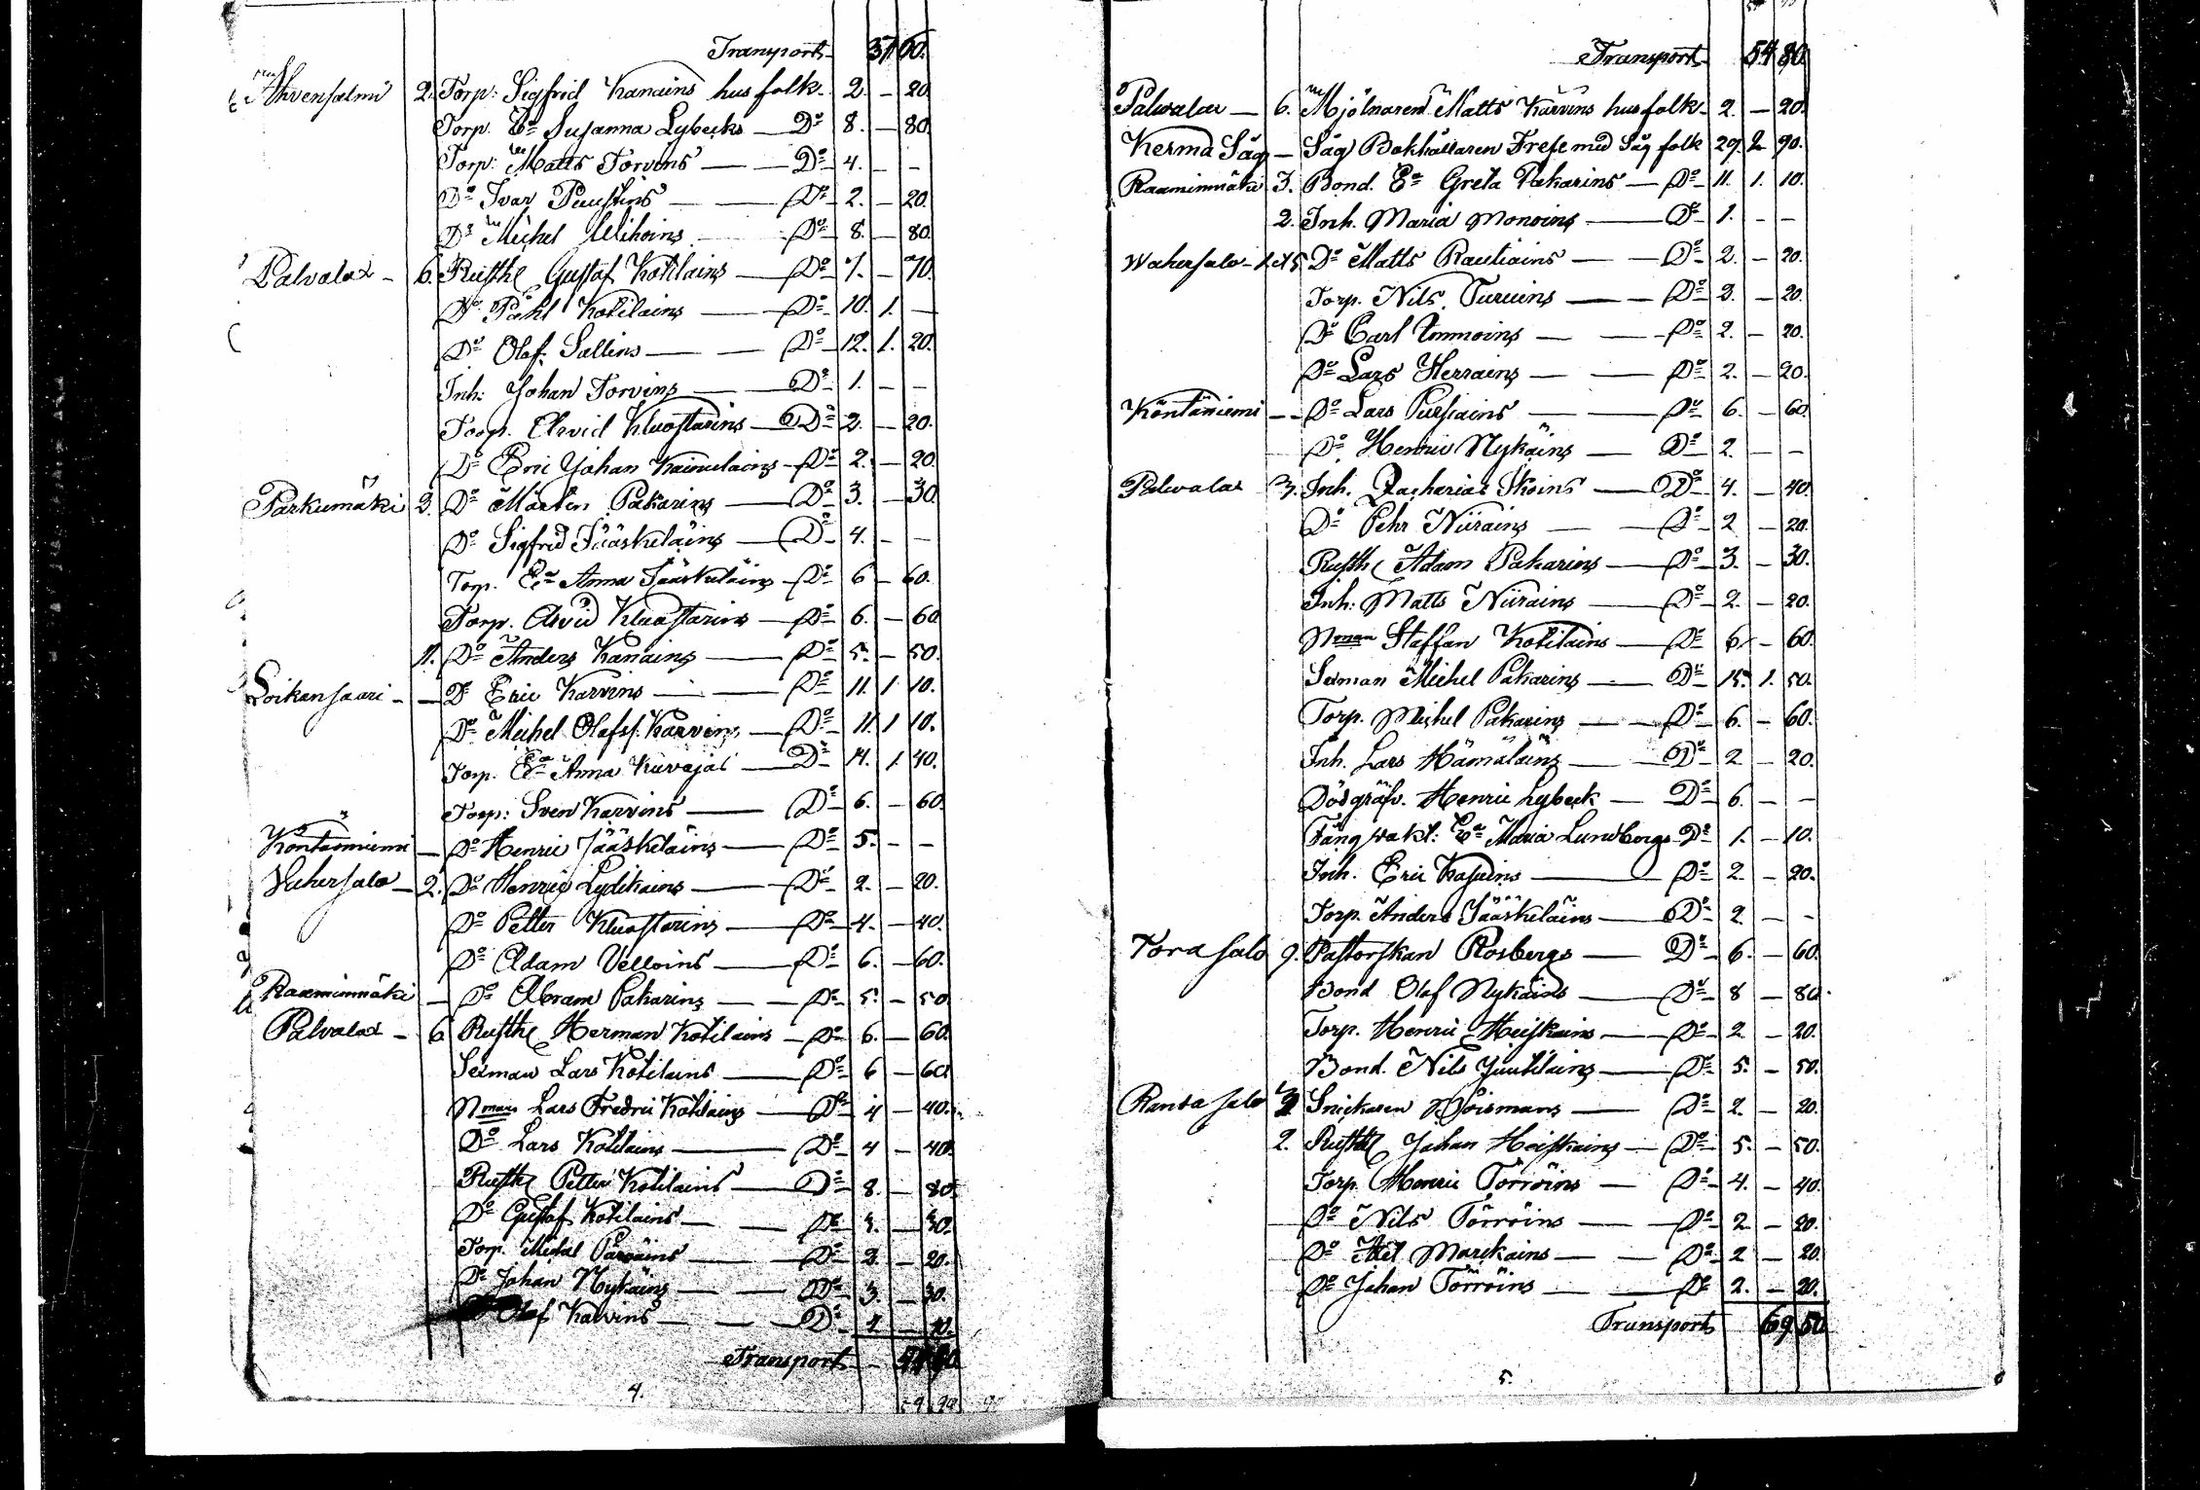 Transport 37 60.
Ahvensalmi 2. Torp: Sigfrid Kanains husfolk 2 — 20.
Torp. Ea Susanna Lybecks — Do 8. — 80.
Torp: Matts Torvins — Do 4. — —
Do Ivar Puustins — Do 2. — 20.
Do Michel Ulihoins Do 8. — 80.
Palvalax — 6. Rusth Gustaf Kotilains — Do 7. — 70.
Do Påhl Kotilains — Do 10. 1. —
Do Olof Sallins — Do 12. 1. 20.
Inh: Johan Torvins — Do 1. — —
Torp. Arvid Kluastarins — Do 2. — 20.
Do Eric Johan Kainulains — Do 2. — 20.
Parkumäki 2. Do Mårten Pakarins — Do 3. — 30.
Do Sigfrid Jääskeläins — Do 4. — —
Torp. Ea Anna Jääskeläins — Do 6 — 60.
Torp. Arvid Kluastarins — Do 6. — 60.
11. Do Anders Kanains — Do 5. — 50.
Loikansaari — — Do Eric Karvins — Do 11. 1 10.
Do Michel Olafss. Karvins — Do 11. 1 10.
Torp. Ea Anna Kuvajas — Do 14. 1. 40.
Torp: Sven Karvins — Do 6. — 60.
Kontöniemi — Do Henric Jääskeläins — Do 5. — —
Vahersalo — 2. Do Henric Lydikains — Do 2. — 20.
Do Petter Kluastarins — Do 4. — 40.
Do Adam Velloins — Do 6. — 60.
Raaminmäki — Do Abram Pakarins — Do 5. — 50.
Palvalax — 6 Rusth Herman Kotilains — Do 6. — 60.
Sexman Lars Kotilains — Do 6 — 60.
Nman Lars Fredric Kotilains — Do 4 — 40.
Do Lars Kotilains — Do 4 — 40.
Rusth Petter Kotilains — Do 8. — 80.
Do Gustaf Kotilains — Do
Torp. Michel — Do 2. — 20.
Do Johan Nykäins — Do 3. — 30.
Olof Karvins — Do
Transport
4.
Transport 54 80.
Palvalax — 6. Mjölnaren Matts Karvins husfolk 2. — 20.
Kerma Såg — Såg Bokhållaren Frese med Såg folk 29. 2 90.
Raaminmäki 3. Bond. Ea Greta Pakarins — Do 11. 1. 10.
2. Inh. Maria Monoins — Do 1. — —
Wahersalo — 1. et 5 Do Matts Rautiains — Do 2. — 20.
Torp. Nils Turuins — Do 2. — 20.
Do Carl Immoins — Do 2. — 20.
Do Lars Herrains — Do 2. — 20.
Köntäniemi — — Do Lars Pursiains — Do 6. — 60.
Do Henric Nykäins — Do 2. — —
Palvalax 3. Inh. Zacharias Ikoins — Do 4. — 40.
Do Pehr Niirains — Do 2 — 20.
Rusth Adam Pakarins — Do 3. — 30.
Inh: Matts Niirains — Do 2. — 20.
Nman Staffan Kotilains — Do 6. — 60.
Sexman Michel Pakarins — Do 15. 1. 50.
Torp. Michel Pakarins — Do 6. — 60.
Inh. Lars Hämäläins — Do 2 — 20.
Dödgräfv. Henric Lybeck — Do 6. — —
Fångvakt: Ea Maria Lundbergs Do 1. — 10.
Inh. Eric Kasurins — Do 2. — 20.
Torp. Anders Jääskeläins — Do 2 — —
Torasalo 9. Pastorskan Rosbergs — Do 6. — 60.
Bond Olof Nykäins — Do 8 — 80.
Torp. Henric Heiskains — Do 2. — 20.
Bond. Nils Juutilains — Do 5. — 50.
Rantasalo Snickaren — Do 2. — 20.
2. Rusth Johan Heiskains — Do 5. — 50.
Torp Henric Törröins — Do 4. — 40.
Do Nils Törröins — Do 2 — 20.
Do Axel Marckains — Do 2 — 20.
Do Johan Törröins — Do 2. — 20.
Transport 69 50
5.